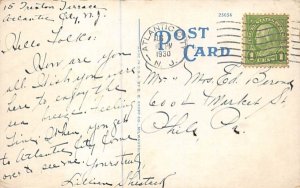 15 Trenton Terrace
Atlantic City, N.J.
Hello Folks:
How are you
all. Wish you were
here to enjoy the
sea breeze. Feeling
fine. When you get
to Atlantic City come
over to see me. Yours truly,
Lillian
ATLANTIC
PM
1930
N. J.
23684
POST
CARD
Mr. & Mrs. Ed.
6004 Market St
Phila. Pa.
1